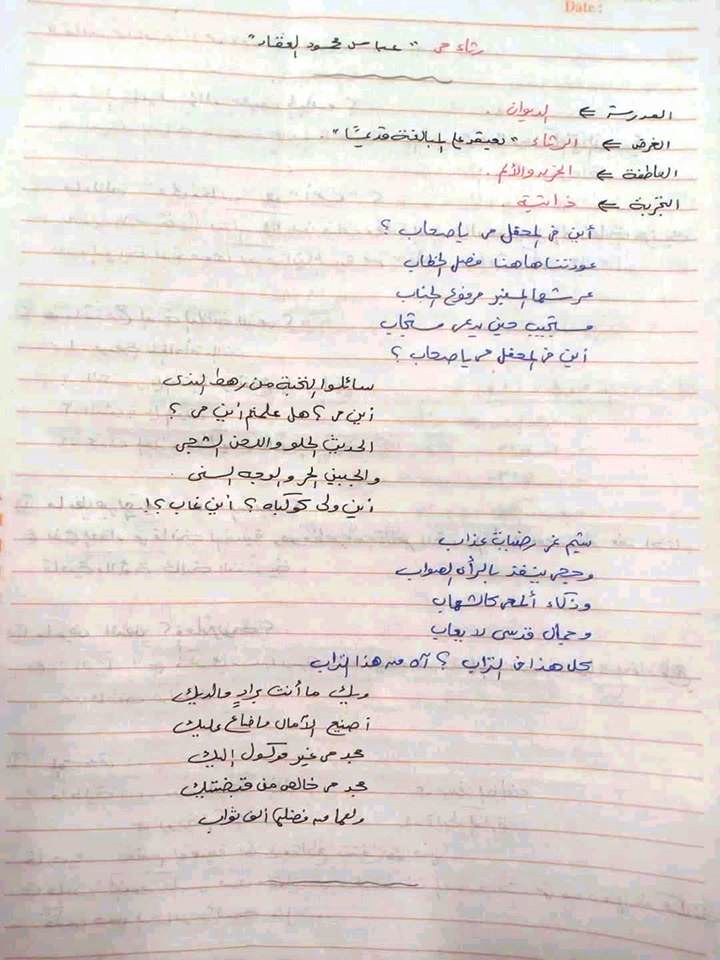 Date:
رثاء مى " عباس محمود العقاد "
المدرسة ⇐ الديوان.
الغرض ⇐ الرثاء "يعتمد على المبالغة قديمًا".
العاطفة ⇐ الحزن والألم.
التجربة ⇐ ذاتية
أين فى المحفل مى يا صحاب ؟
عودتنا هاهنا فصل الخطاب
عرشها المنبر مرفوع الجناب
مستجيب حين يدعى مستجاب
أين فى المحفل مى يا صحاب ؟
سائلوا النخبة من رهط الندى
أين مى ؟ هل علمتم أين مى ؟
الحديث الحلو واللحن الشجى
والجبين الحر والوجه السنى .
أين ولى كوكباه ؟ أين غاب ؟!
شيم غر رضيات عذاب
وحجى ينفذ بالرأى الصواب
وذكاء ألمعى كالشهاب
وجمال قدسى لا يعاب
كل هذا فى التراب ؟ آه من هذا التراب
ويك ما أنت برادٍ ما لديك
أضيع الآمال ما ضاع عليك
مجد مى غير موكول اليك
مجد مى خالص من قبضتيك
ولها من فضلها ألف ثواب